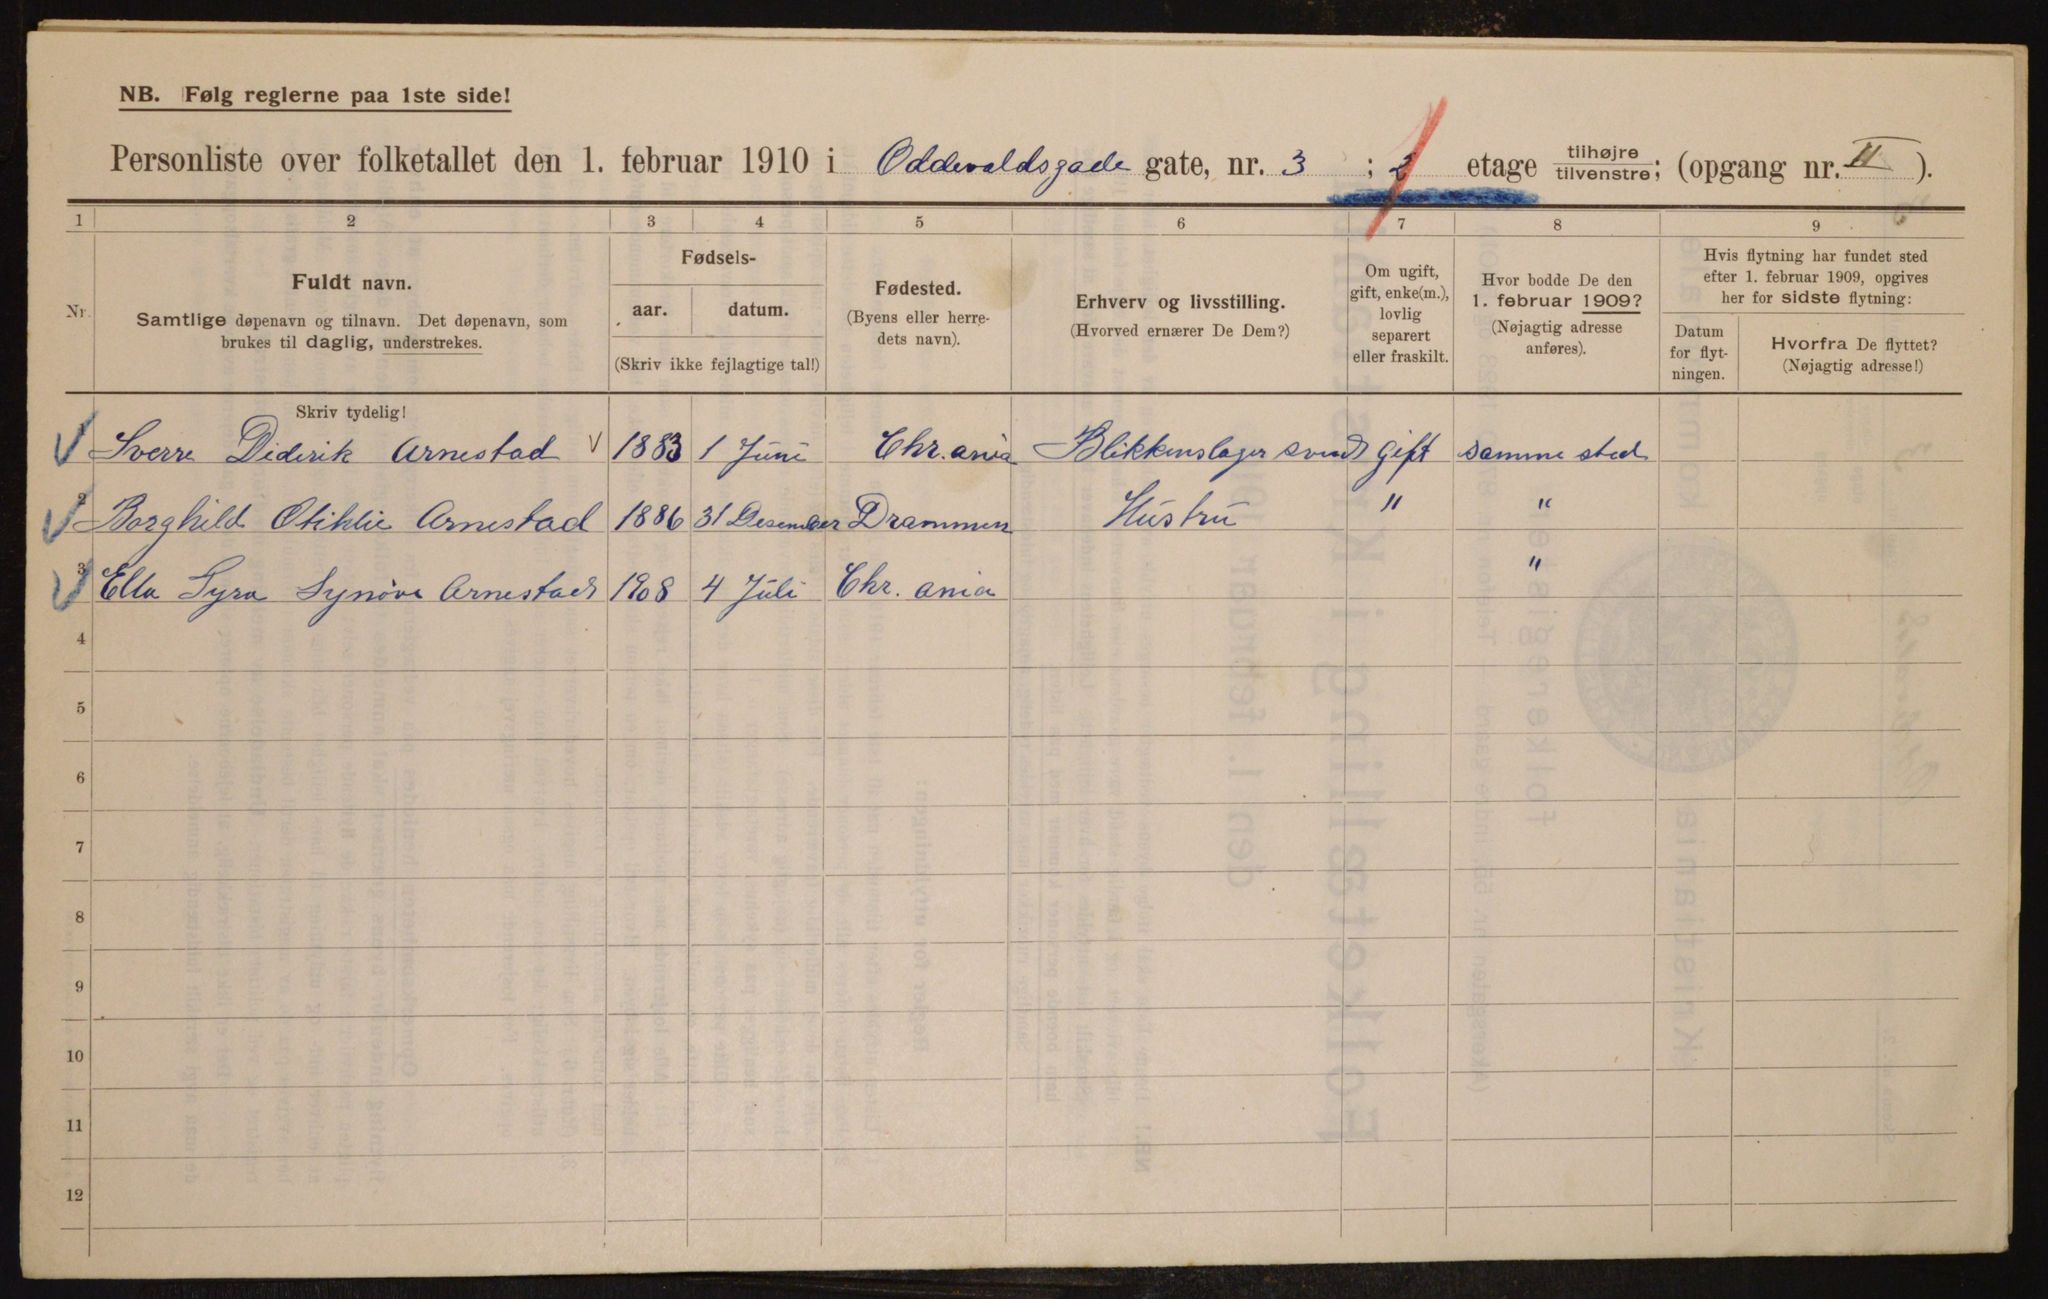 NB. Følg reglerne paa 1ste side!
Personliste over folketallet den 1. februar 1910 i Oddevaldsgade gate, nr. 3 ; 2 etage tilhøjre tilvenstre; (opgang nr. II ).
1 2 3 4 5 6 7 8 9
Nr.
Fuldt navn.
Samtlige døpenavn og tilnavn. Det døpenavn, som
brukes til daglig, understrekes.
Fødsels-
aar. datum.
(Skriv ikke fejlagtige tal!)
Fødested.
(Byens eller herre-
dets navn).
Erhverv og livsstilling.
(Hvorved ernærer De Dem?)
Om ugift,
gift, enke(m.),
lovlig
separert
eller fraskilt.
Hvor bodde De den
1. februar 1909?
(Nøjagtig adresse
anføres).
Hvis flytning har fundet sted
efter 1. februar 1909, opgives
her for sidste flytning:
Datum
for flyt-
ningen.
Hvorfra De flyttet?
(Nøjagtig adresse!)
Skriv tydelig!
Sverre Diderik Arnestad 1883 1 Juni Chr.ania Blikkenslager svend gift samme sted
2 Borghild Otihlie Arnestad 1886 31 Desember Drammen Hustru " "
3 Ella Syra Synøve Arnestad 1908 4 Juli Chr. ania "
4
5
6
7
8
9
10
11
12